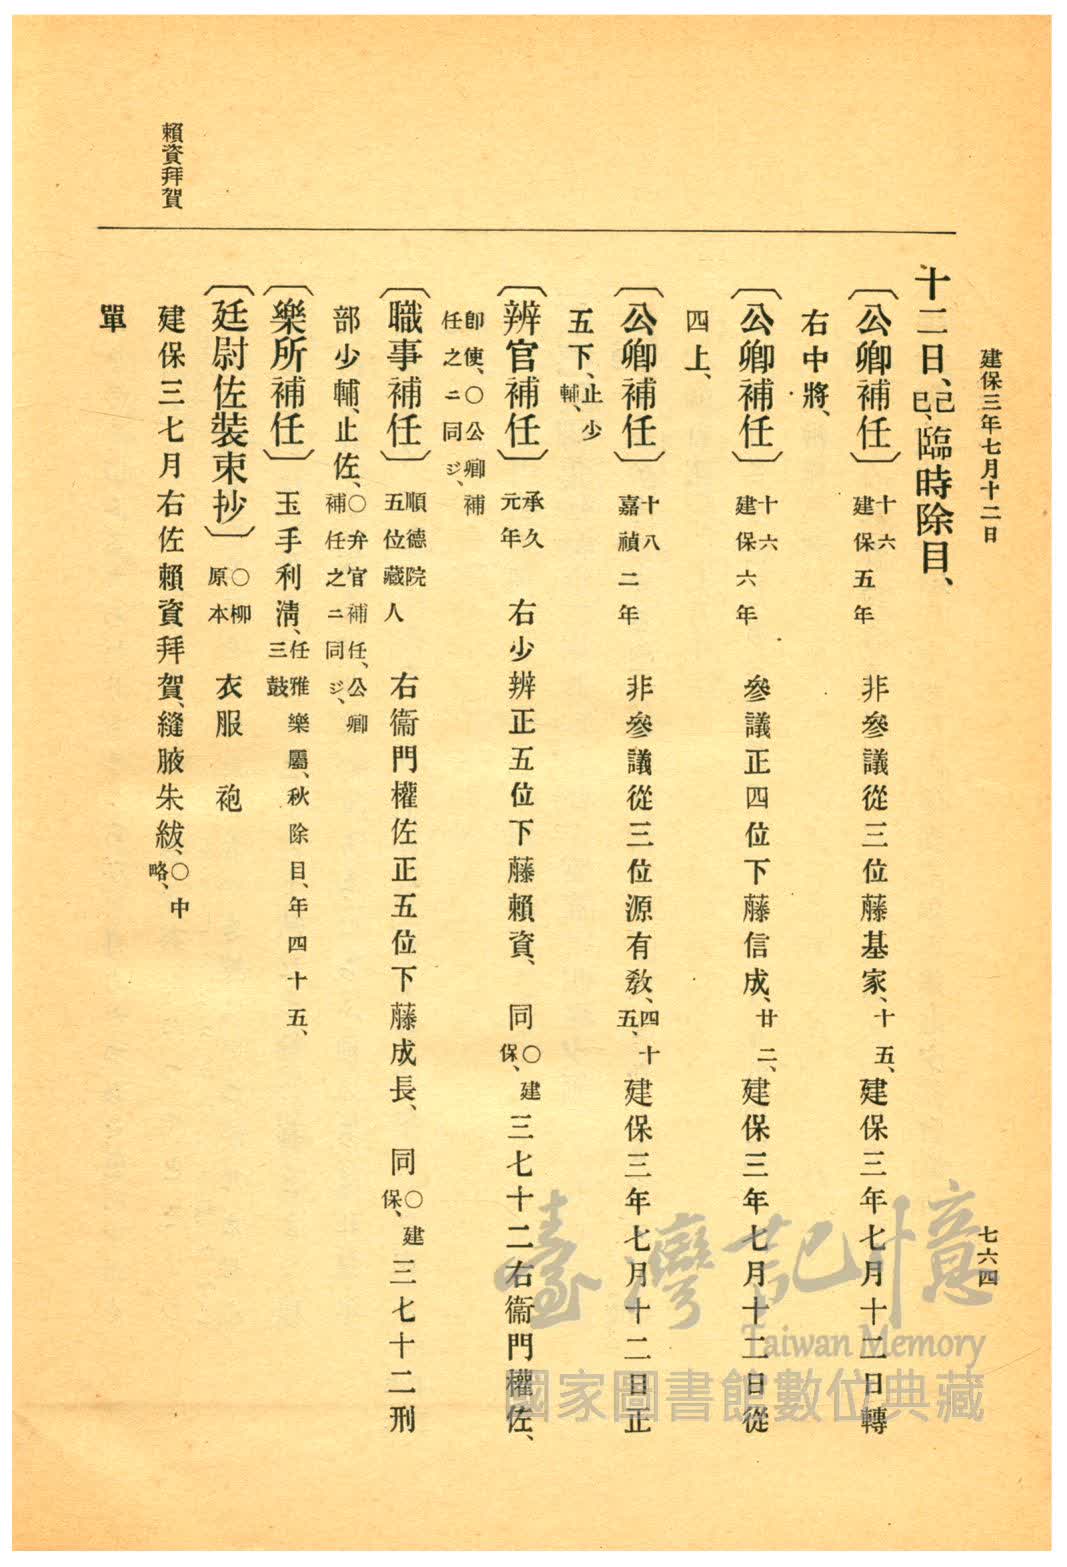 建保三年七月十二日
七六四
十二日、己巳、臨時除目、
〔公卿補任〕十六 建保五年 非參議從三位藤基家、十五、建保三年七月十二日轉
右中將、
〔公卿補任〕十六 建保六年 參議正四位下藤信成、廿二、建保三年七月十二日從
四上、
〔公卿補任〕十八 嘉禎二年 非參議從三位源有教、四十五、建保三年七月十二日正
五下、止少輔、
〔辨官補任〕承久元年 右少辨正五位下藤賴資、同〇建保、三七十二右衞門權佐、
卽使、〇公卿補任之ニ同ジ、
〔職事補任〕順德院 五位藏人 右衞門權佐正五位下藤成長、同〇建保、三七十二刑
部少輔、止佐、〇弁官補任、公卿補任之ニ同ジ、
〔樂所補任〕玉手利淸、任雅樂屬、秋除目、年四十五、三鼓
〔廷尉佐裝束抄〕〇柳原本 衣服 袍
建保三七月右佐賴資拜賀、縫腋朱紱、〇中略、
單
賴資拜賀
臺灣記憶
Taiwan Memory
國家圖書館數位典藏